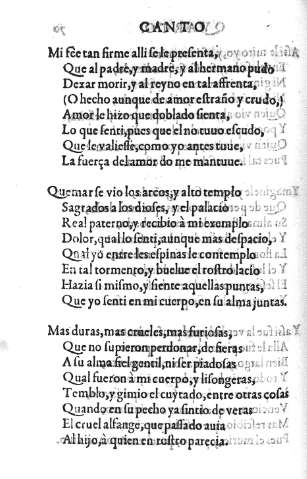 CANTO
Mi fee tan firme alli se le presenta,
Que al padre, y madre, y al hermano pudo
Dexar morir, y al reyno en tal affrenta,
(O hecho aunque de amor estraño y crudo,)
Amor le hizo que doblado sienta,
Lo que senti, pues que el no tuuo escudo,
Que le valiesse, como yo antes tuue,
La fuerça del amor do me mantuue.
Quemar se vio los arcos, y alto templo
Sagrados a los dioses, y el palacio
Real paterno, y recibio à mi exemplo
Dolor, qual lo senti, aunque mas despacio,
Qual yo entre las espinas le contemplo
En tal tormento, y buelue el rostro lacio
Hazia si mismo, y siente aquellas puntas,
Que yo senti en mi cuerpo, en su alma juntas.
Mas duras, mas crueles, mas furiosas,
Que no supieron perdonar, de fieras
A su alma fiel gentil, ni ser piadosas
Qual fueron à mi cuerpo, y lisongeras,
Temblo, y gimio el cuytado, entre otras cosas
Quando en su pecho ya sintio de veras
El cruel alfange, que passado auia
Al hijo, à quien en rostro parecia.